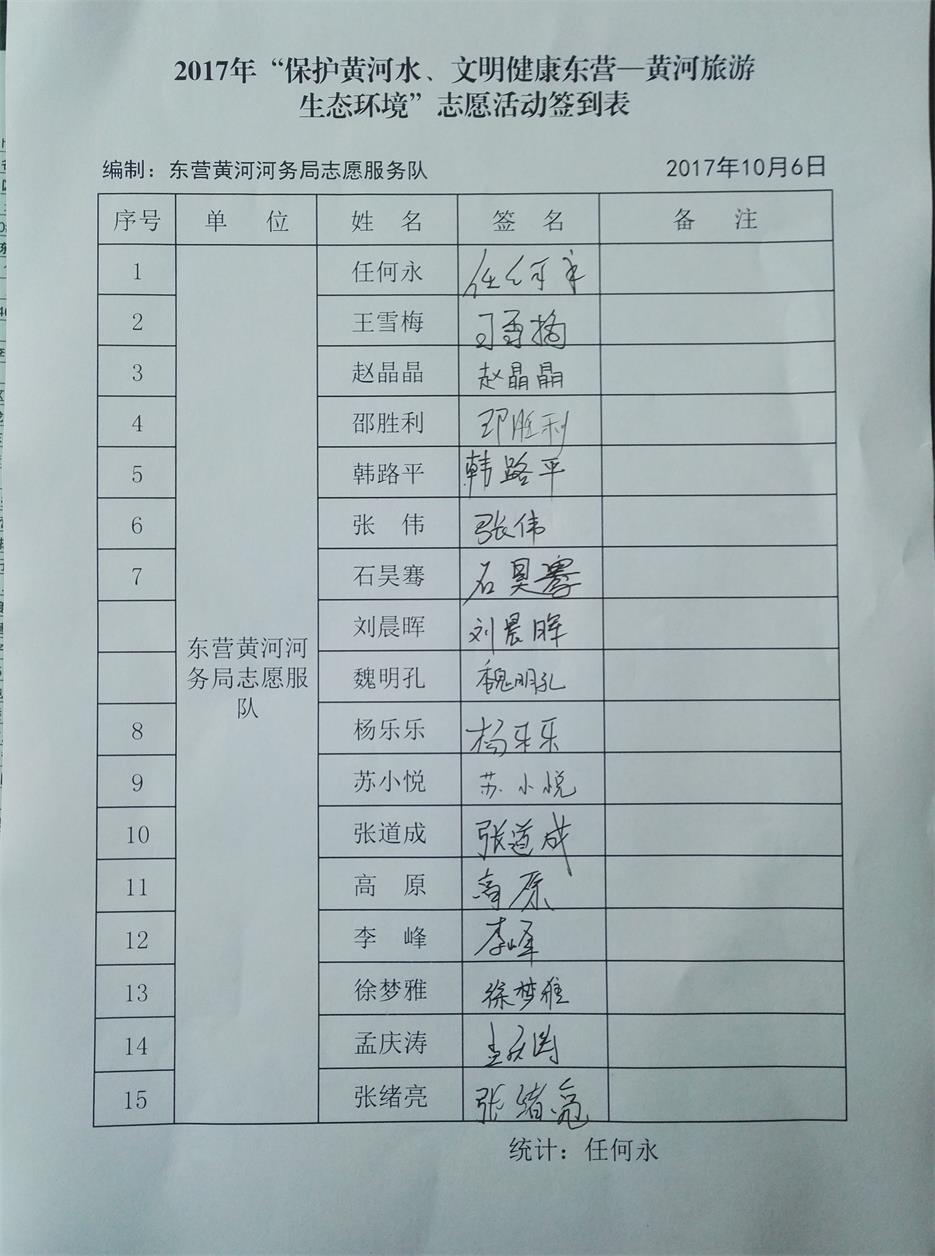 2017年“保护黄河水、文明健康东营—黄河旅游
生态环境”志愿活动签到表
编制：东营黄河河务局志愿服务队 2017年10月6日
序号 单 位 姓 名 签 名 备 注
1 任何永 任何永
2 王雪梅 王雪梅
3 赵晶晶 赵晶晶
4 邵胜利 邵胜利
5 韩路平 韩路平
6 张 伟 张伟
7 石昊骞 石昊骞
刘晨晖 刘晨晖
东营黄河河
务局志愿服
队
魏明孔 魏明孔
8 杨乐乐 杨乐乐
9 苏小悦 苏小悦
10 张道成 张道成
11 高 原 高原
12 李 峰 李峰
13 徐梦雅 徐梦雅
14 孟庆涛 孟庆涛
15 张绪亮 张绪亮
统计：任何永